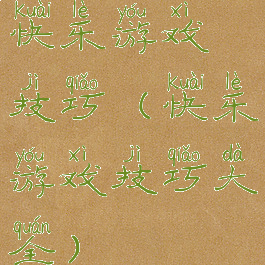 kuài lè yóu xì
快乐游戏
jì qiǎo kuài lè
技巧（快乐
yóu xì jì qiǎo dà
游戏技巧大
quán
全）